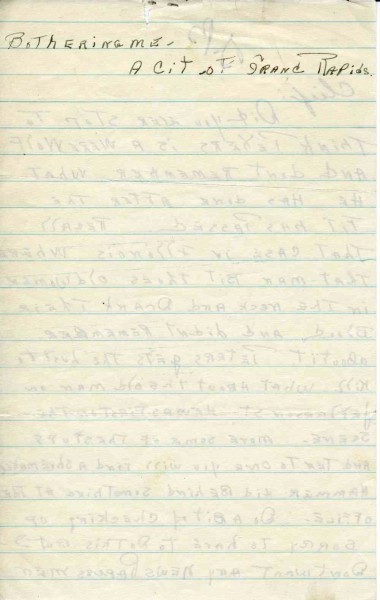 BOTHERING ME -
A Cit of GRAND RAPIDS.
Chief: Did you ever stop to
THINK PETERS IS A WEREWOLF
AND dont REMEMBER WHAT
HE HAS DONE AFTER THE
FIT HAS PASSED. RECALL
THAT CASE IN ILLINOIS WHERE
THAT MAN BIT THREE OLD WOMEN
IN THE NECK AND DRANK THEIR
Blood AND didnt REMEMBER
about it PETERS GETS THE lust to
Kill WHAT ABOUT THE OLD MAN ON
JEFFERSON ST. HE WAS SEEN ON THE
SCENE - SOME OF THESE
AND TEN TO ONE you will find A SHOEMAKERS
HAMMER Hid BEHIND SOMETHING AT THE
OFFICE - DO A Bit of CHECKING UP
SORRY TO HAVE TO DO THIS but I
DONT WANT ANY NEWS PAPERS MEN